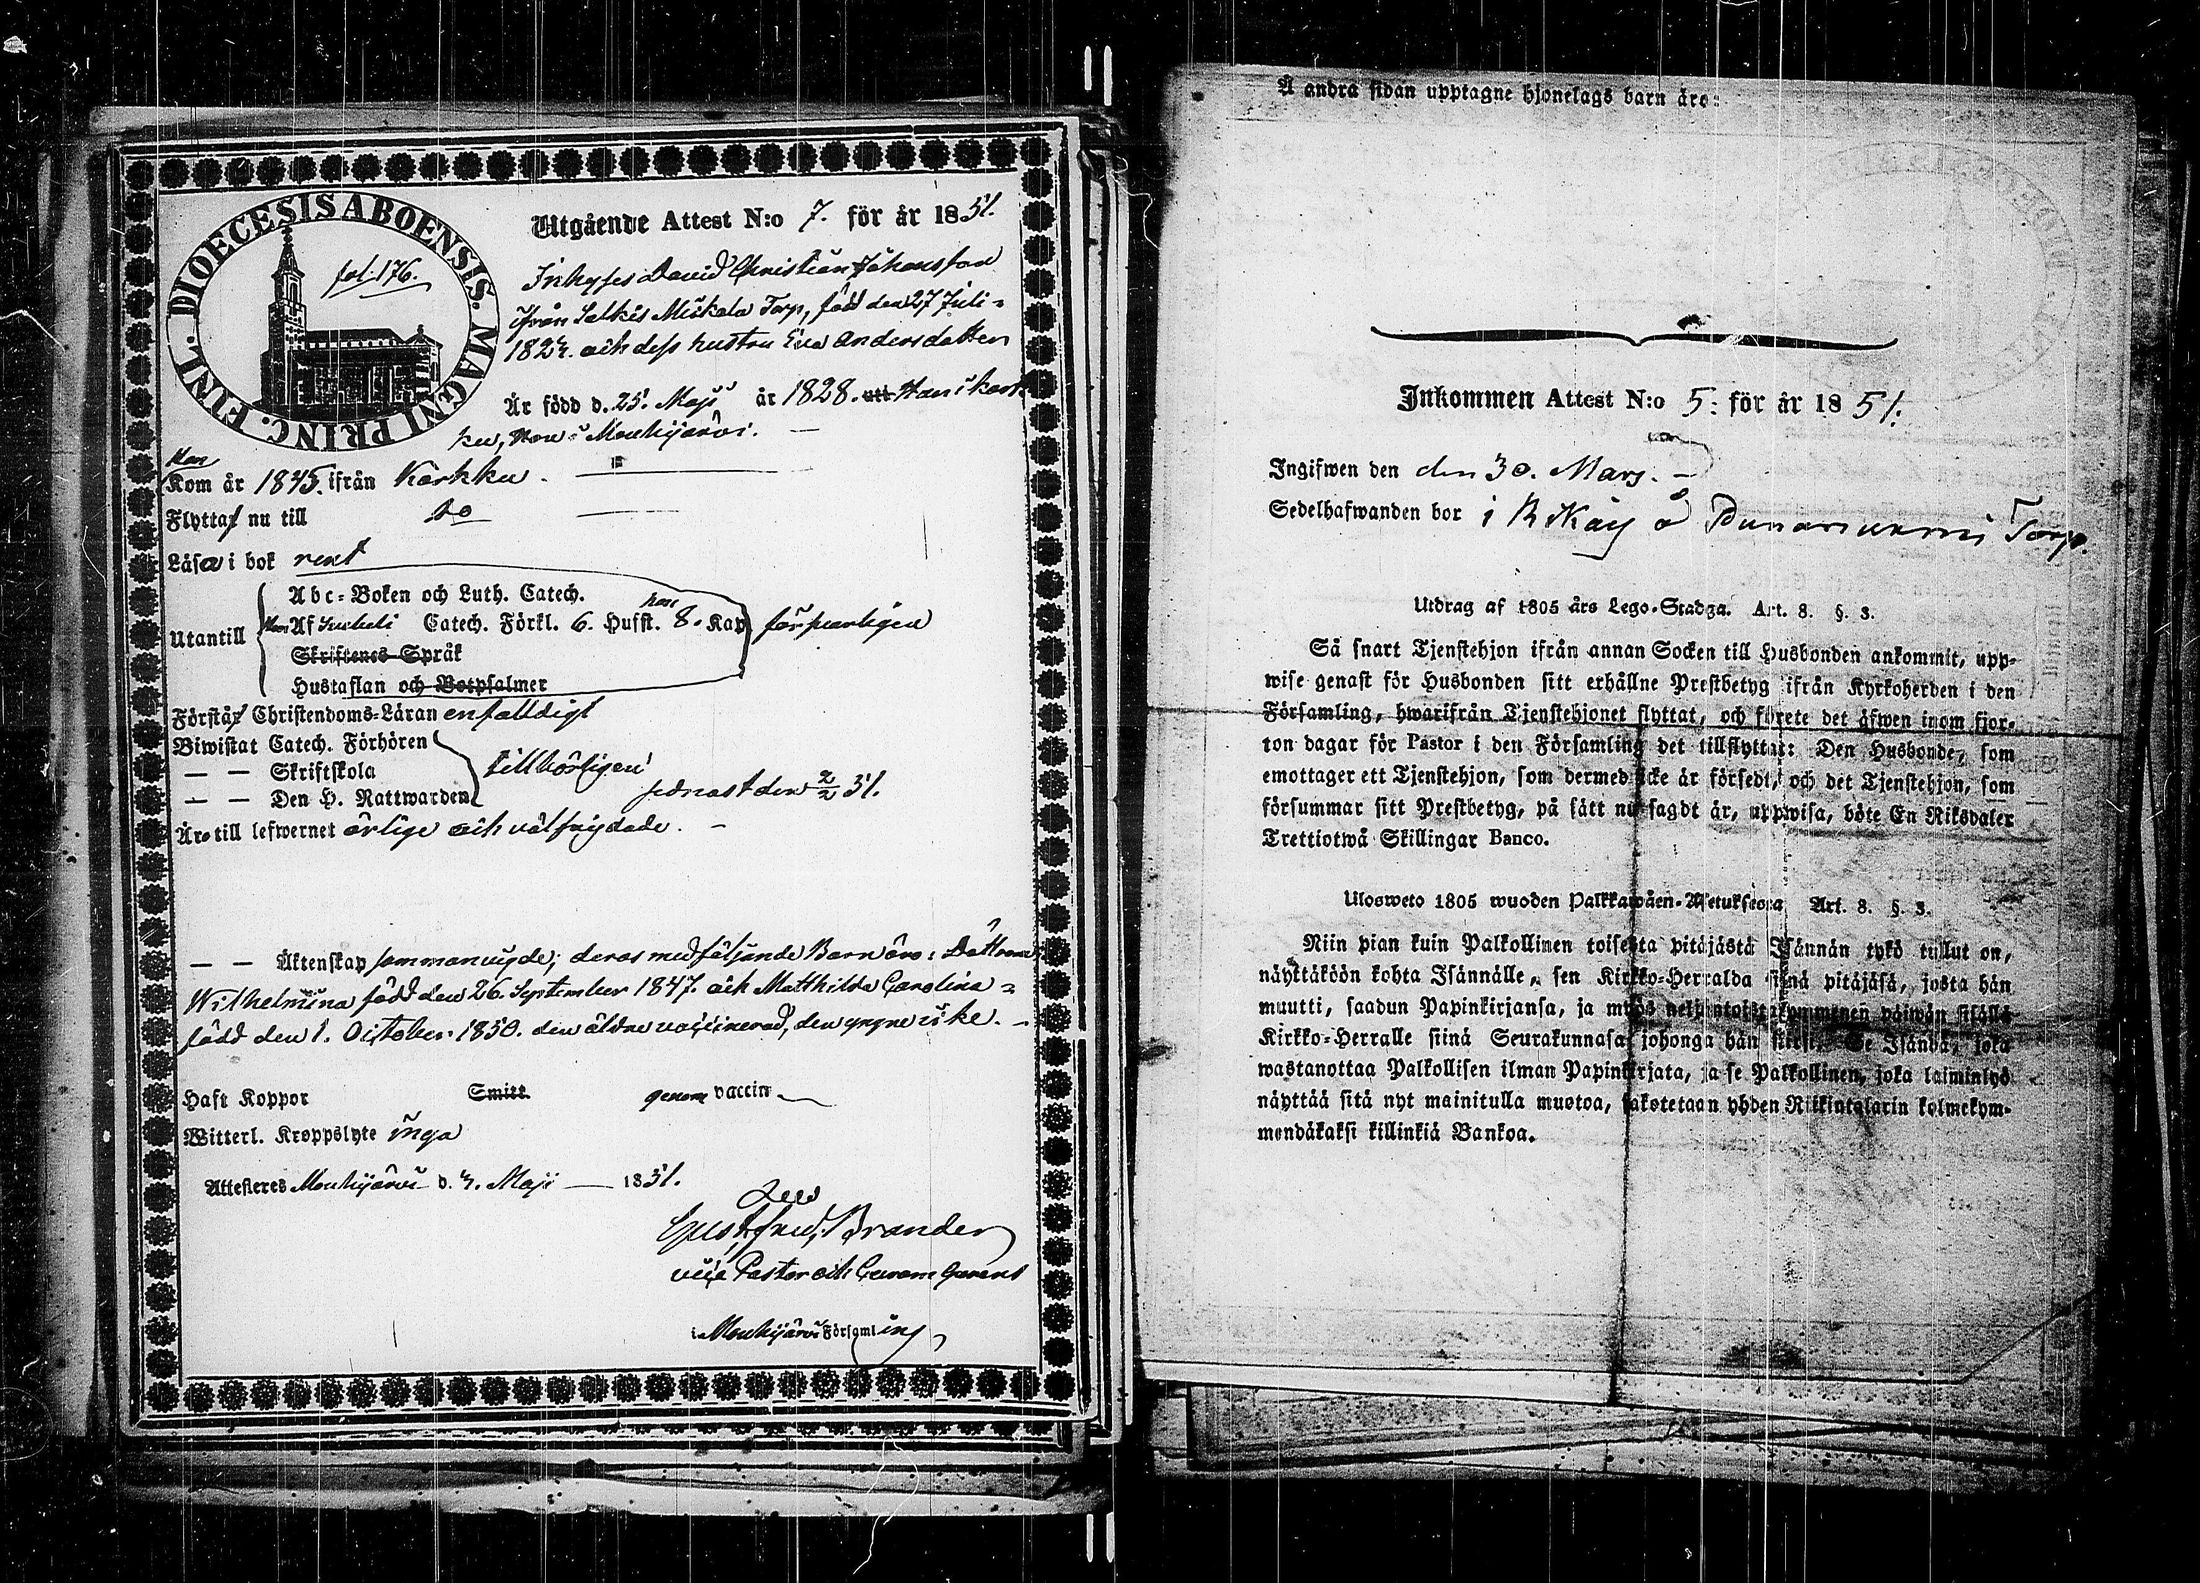 DIOECESIS ABOENSIS. MAGNI PRINC. FINL.
fol. 176.
Utgående Attest N:o 7. för år 1851.
Inhyses David Christian Johansson
ifrån Selkis Mickala Torp, född den 27 Juli
1824. och dess hustru Eva Andersdotter
Är född d. 25. Maji år 1828. utt Han i Kark-
ku, Hon i Mouhijärvi. —
Han
Kom år 1845. ifrån Karkku. —
Flytta nu till do
Läsa i bok rent
Utantill
Abc-Boken och Luth. Catech.
Af Catech. Förkl. 6. Hufst. 8. Kap. försvarligen
Skriftenes Språk
Hustaflan och Botpsalmer
Förstå Christendoms-Läran enfaldigt
Biwistat Catech. Förhören
— — Skriftskola tillbörligen
— — Den H. Nattwarden sednast den 2/2 51.
Äro till lefwernet ärlige och välfrejdade. —
— — Äktenskap sammanvigde; deras medföljande Barn äro: Döttrarna
Wilhelmina född den 26. September 1847. och Matthilda Carolina
född den 1. October 1850. den äldre vaccinerad, den yngre icke. —
Haft Koppor Smitt. genom vaccin
Witterl. Kroppslyte inga
Attesteres Mouhijärvi d. 4. Maji — 1851.
Gust. Fred. Brander
vice Pastor och
i Mouhijärvi Församling
Å andra sidan upptagne hjonelags barn äro:
Inkommen Attest N:o 5: för år 1851.
Ingifwen den den 30. Mars. —
Sedelhafwanden bor i Torp.
Utdrag af 1805 års Lego-Stadga. Art. 8. §. 3.
Så snart Tjenstehjon ifrån annan Socken till Husbonden ankommit, upp-
wise genast för Husbonden sitt erhållne Prestbetyg ifrån Kyrkoherden i den
Församling, hwarifrån Tjenstehjonet flyttat, och förete det äfwen inom fjor-
ton dagar för Pastor i den Församling det tillflyttat: Den Husbonde, som
emottager ett Tjenstehjon, som dermed icke är försedt, och det Tjenstehjon, som
försummar sitt Prestbetyg, på sätt nu sagdt är, uppwisa, böte En Riksdaler
Trettiotwå Skillingar Banco.
Ulosweto 1805 wuoden Palkkawäen-Asetuksesta Art. 8. §. 3.
Niin pian kuin Palkollinen toisesta pitäjästä Isännän tykö tullut on,
näyttäköön kohta Isännälle, sen Kirkko-Herralda siinä pitäjäsä, josta hän
muutti, saadun Papinkirjansa, ja myös neljäntoistakymmenen päiwän sisällä
Kirkko-Herralle siinä Seurakunnasa johonga hän siirsi. Se Isändä, joka
wastanottaa Palkollisen ilman Papinkirjata, ja se Palkollinen, joka laiminlyö
näyttää sitä nyt mainitulla muotoa, sakotetaan yhden Riikintalarin kolmekym-
mendäkaksi killinkiä Bankoa.